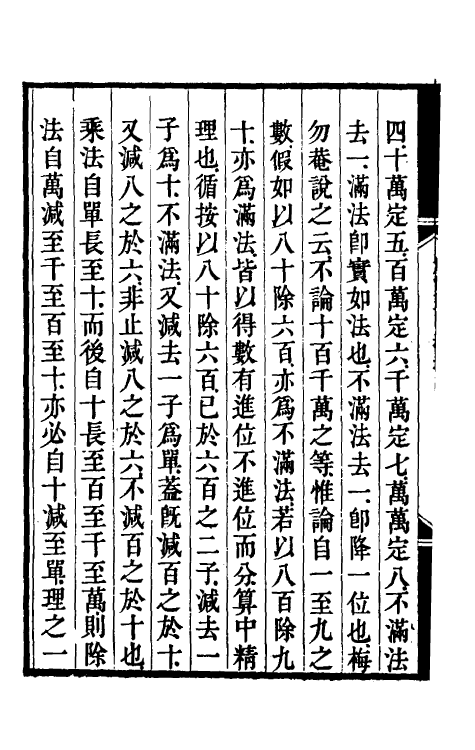 四十萬定五百萬定六千萬定七萬萬定八不滿法
去一滿法卽實如法也不滿法去一卽降一位也梅
勿菴說之云不論十百千萬之等惟論自一至九之
數假如以八十除六百亦爲不滿法若以八百除九
十亦爲滿法皆以得數有進位不進位而分算中精
理也循按以八十除六百已於六百之二子減去一
子爲十不滿法又減去一子爲單蓋旣減百之於十
又減八之於六非止減八之於六不減百之於十也
乘法自單長至十而後自十長至百至千至萬則除
法自萬減至千至百至十亦必自十減至單理之一